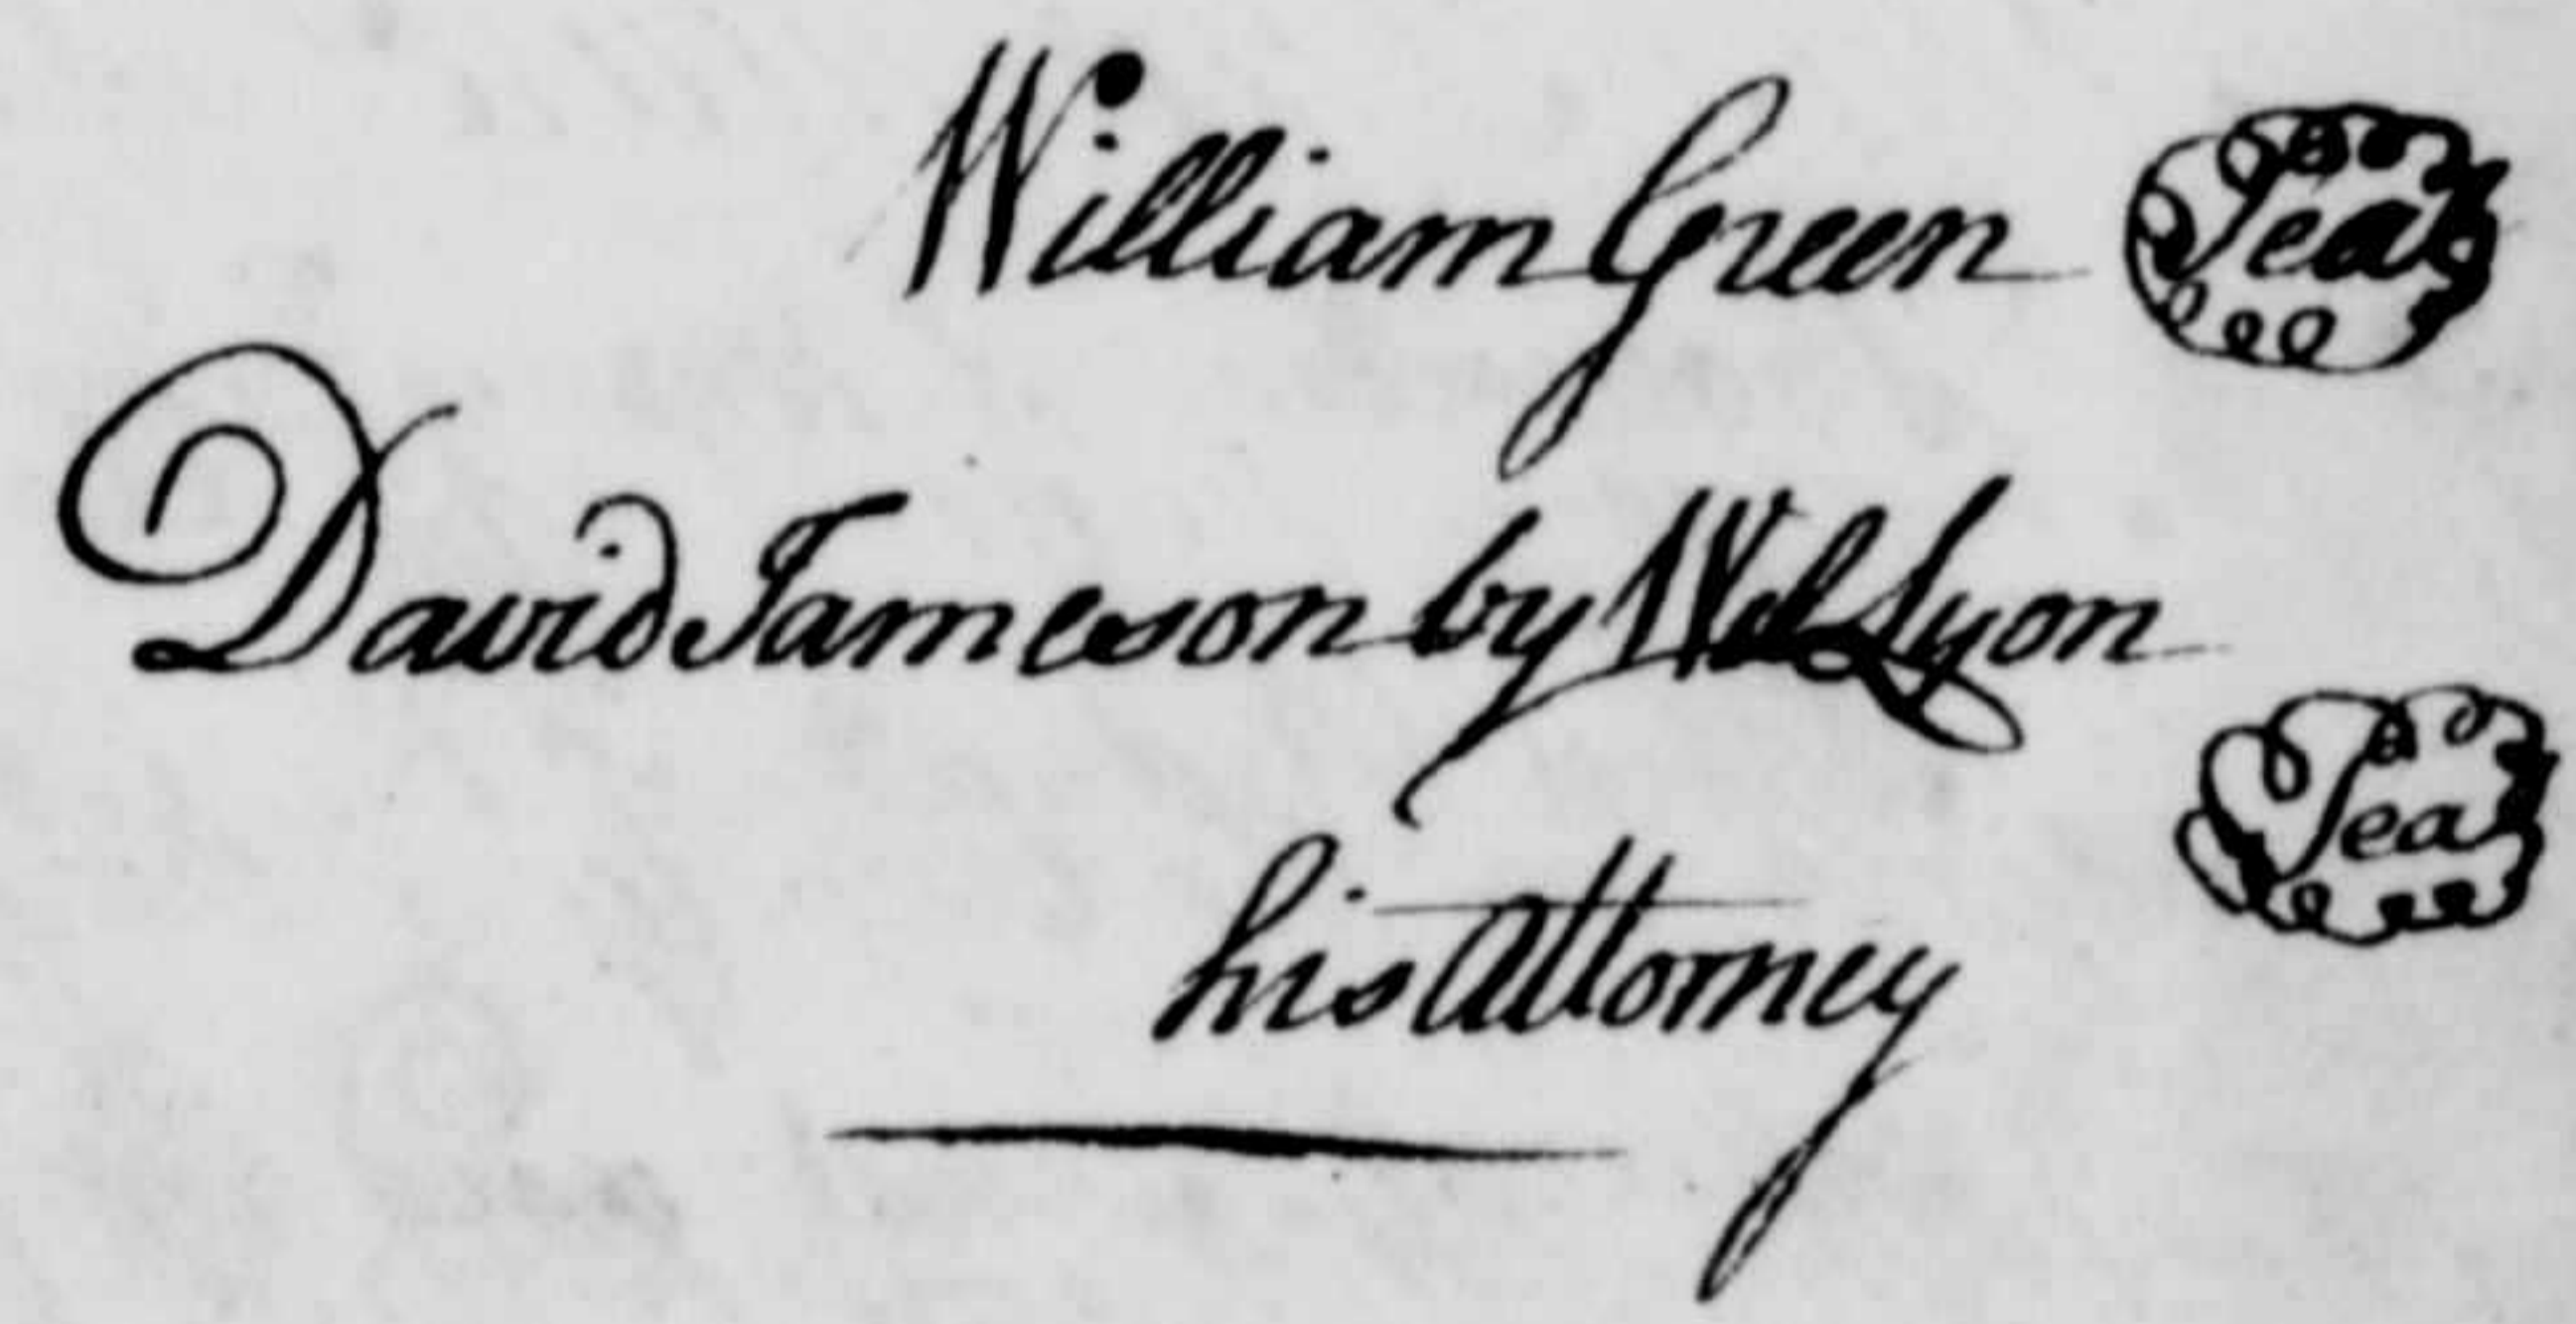 William Green Seal
David Jameson by Wil Lyon
Seal
his Attorney